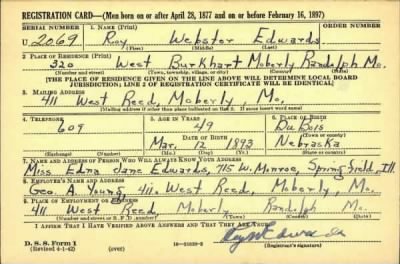 REGISTRATION CARD—(Men born on or after April 28, 1877 and on or before February 16, 1897)
SERIAL NUMBER 1. NAME (Print) ORDER NUMBER
U 2069 Roy Webster Edwards
(First) (Middle) (Last)
2. PLACE OF RESIDENCE (Print)
320 West Burkhart Moberly Randolph Mo.
(Number and street) (Town, township, village, or city) (County) (State)
[THE PLACE OF RESIDENCE GIVEN ON THE LINE ABOVE WILL DETERMINE LOCAL BOARD
JURISDICTION; LINE 2 OF REGISTRATION CERTIFICATE WILL BE IDENTICAL]
3. MAILING ADDRESS
411 West Reed, Moberly, Mo.
[Mailing address if other than place indicated on line 2. If same insert word same]
4. TELEPHONE 5. AGE IN YEARS 6. PLACE OF BIRTH
609 49 DuBois
DATE OF BIRTH (Town or county)
Mar. 12 1893 Nebraska
(Exchange) (Number) (Mo.) (Day) (Yr.) (State or country)
7. NAME AND ADDRESS OF PERSON WHO WILL ALWAYS KNOW YOUR ADDRESS
Miss Edna Jane Edwards, 715 W. Monroe, Springfield, Ill
8. EMPLOYER'S NAME AND ADDRESS
Geo. A. Young, 411 West Reed, Moberly, Mo.
9. PLACE OF EMPLOYMENT OR BUSINESS
411 West Reed Moberly Randolph Mo.
(Number and street or R. F. D. number) (Town) (County) (State)
I AFFIRM THAT I HAVE VERIFIED ABOVE ANSWERS AND THAT THEY ARE TRUE.
D. S. S. Form 1
(Revised 4-1-42) (over) (Registrant's signature)